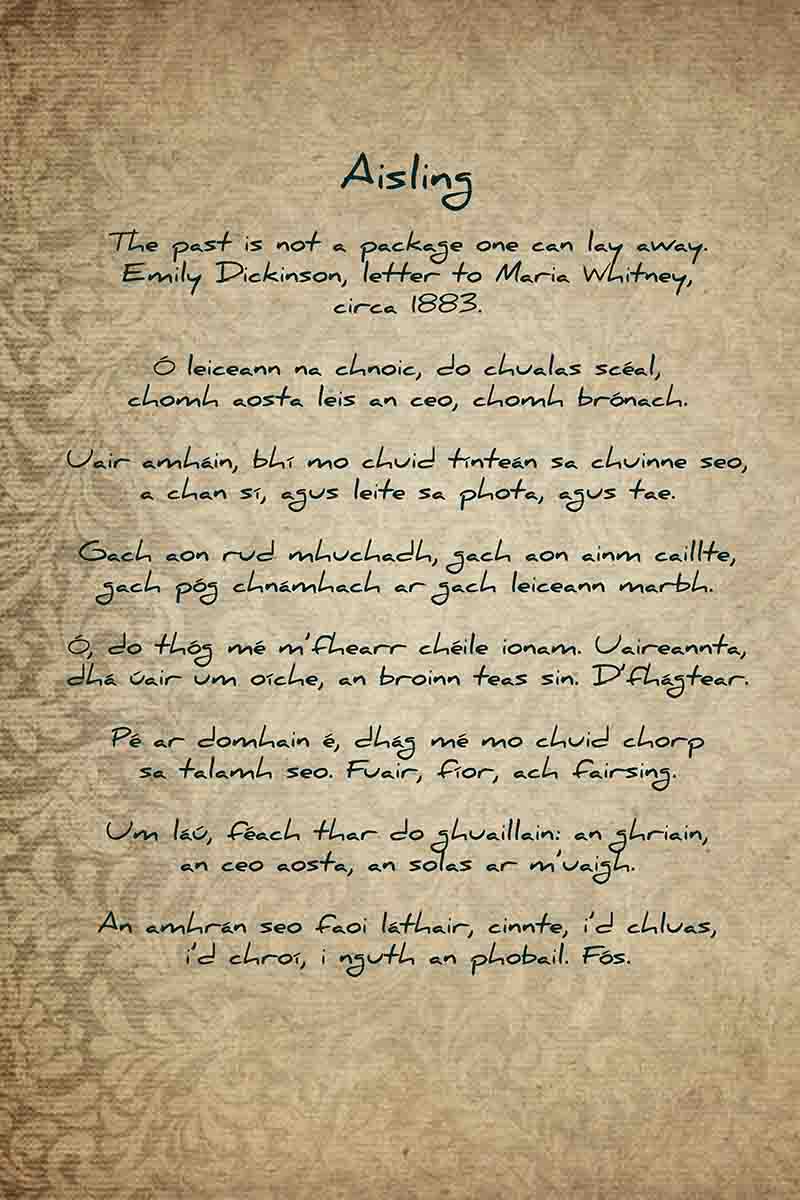 Aisling
The past is not a package one can lay away.
Emily Dickinson, letter to Maria Whitney,
circa 1883.
Ó leiceann na chnoic, do chualas scéal,
chomh aosta leis an ceo, chomh brónach.
Uair amháin, bhí mo chuid tínteán sa chuinne seo,
a chan sí, agus leite sa phota, agus tae.
Gach aon rud mhuchadh, gach aon ainm caillte,
gach póg chnámhach ar gach leiceann marbh.
Ó, do thóg mé m'fhearr chéile ionam. Uaireannta,
dhá úair um oíche, an broinn teas sin. D'fhágtear.
Pé ar domhain é, dhág mé mo chuid chorp
sa talamh seo. Fuair, fíor, ach fairsing.
Um láú, féach thar do ghuaillain: an ghriain,
an ceo aosta, an solas ar m'uaigh.
An amhrán seo faoi láthair, cinnte, i'd chluas,
i'd chroí, i nguth an phobail. Fós.